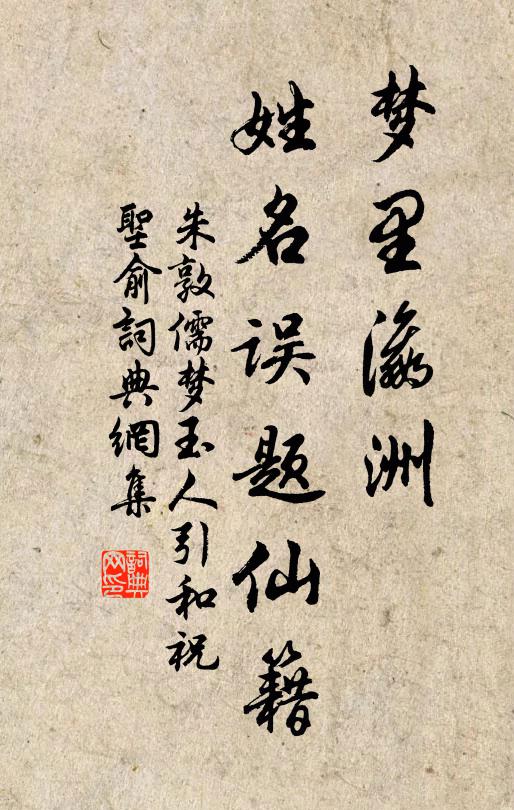 梦里瀛洲
姓名误题仙籍
朱敦儒梦玉人引和祝
聖俞詞典網集
詞典网印